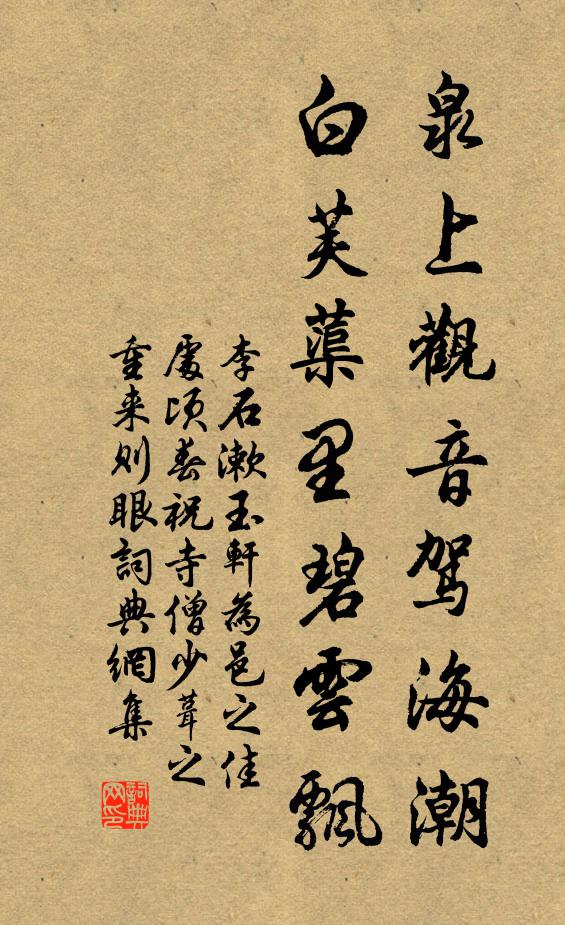 泉上觀音駕海潮
白芙蕖里碧雲飄
李石漱玉軒為邑之佳
處頃春祝寺僧少葺之
重来则眼詞典網集
詞典网印